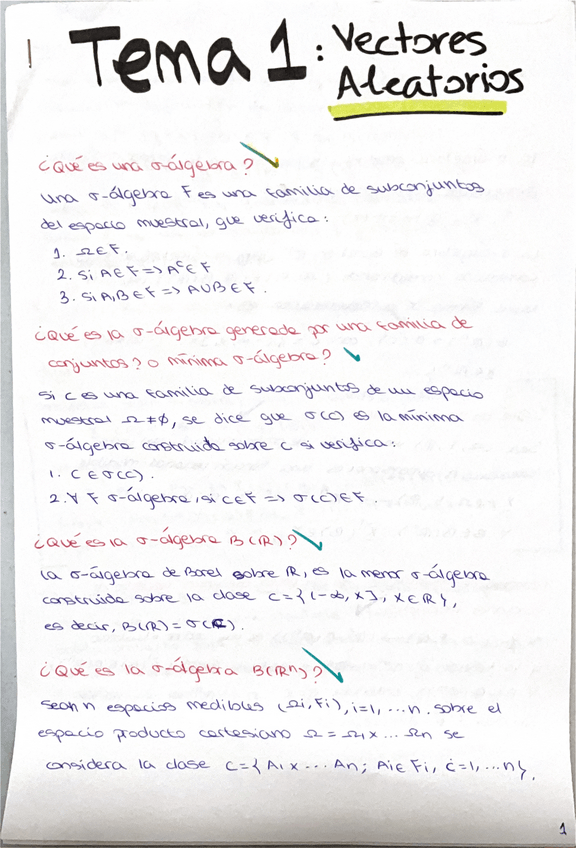 Tema 1: Vectores
Aleatorios
¿Qué es una σ-álgebra?
Una σ-álgebra F es una familia de subconjuntos
del espacio muestral, que verifica:
1. Ω∈F.
2. Si A∈F => Aᶜ∈F
3. Si A,B∈F => A∪B∈F.
¿Qué es la σ-álgebra generada por una familia de
conjuntos? o mínima σ-álgebra?
Si C es una familia de subconjuntos de un espacio
muestral Ω≠∅, se dice que σ(C) es la mínima
σ-álgebra construida sobre C si verifica:
1. C∈σ(C).
2. ∀ F σ-álgebra, si C∈F => σ(C)∈F.
¿Qué es la σ-álgebra B(R)?
La σ-álgebra de Borel sobre R, es la menor σ-álgebra
construida sobre la clase C={(-∞, x], x∈R},
es decir, B(R)=σ(C).
¿Qué es la σ-álgebra B(Rⁿ)?
Sean n espacios medibles (Ωi, Fi), i=1, ...n. sobre el
espacio producto cartesiano Ω = Ω1 x ... Ωn se
considera la clase C={A1 x ... An; Ai∈Fi, i=1, ...n}.
1